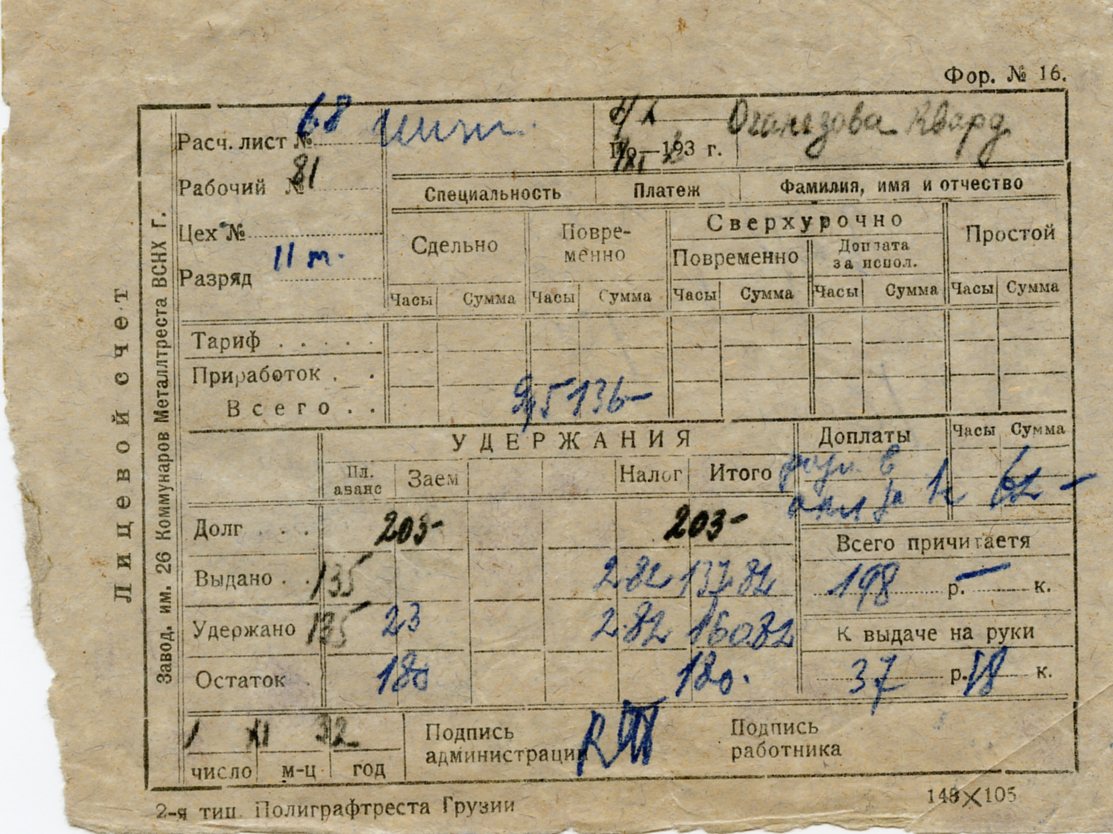 Фор. № 16.
Лицевой счет
Завод. им. 26 Коммунаров Металлтреста ВСНХ г.
Расч. лист № 68
Рабочий № 81
Цех №
Разряд 11 т.
По 193 г.
Оганезова Квард
Специальность Платеж Фамилия, имя и отчество
Сдельно Повре-менно Сверхурочно Простой
Повременно Доплата за испол.
Часы Сумма Часы Сумма Часы Сумма Часы Сумма Часы Сумма
Тариф . . . . .
Приработок . .
Всего . . 136-
УДЕРЖАНИЯ Доплаты Часы Сумма
Пл. аванс Заем Налог Итого
62-
Долг . . . 203- 203-
Всего причитаетя
Выдано . . 135 2.82 137.82
198 р. - к.
Удержано 135 23 2.82 160.82
К выдаче на руки
Остаток . 180 180.
37 р. 18 к.
1 XI 32
число м-ц год
Подпись администрации
Подпись работника
2-я тип. Полиграфтреста Грузии
148×105